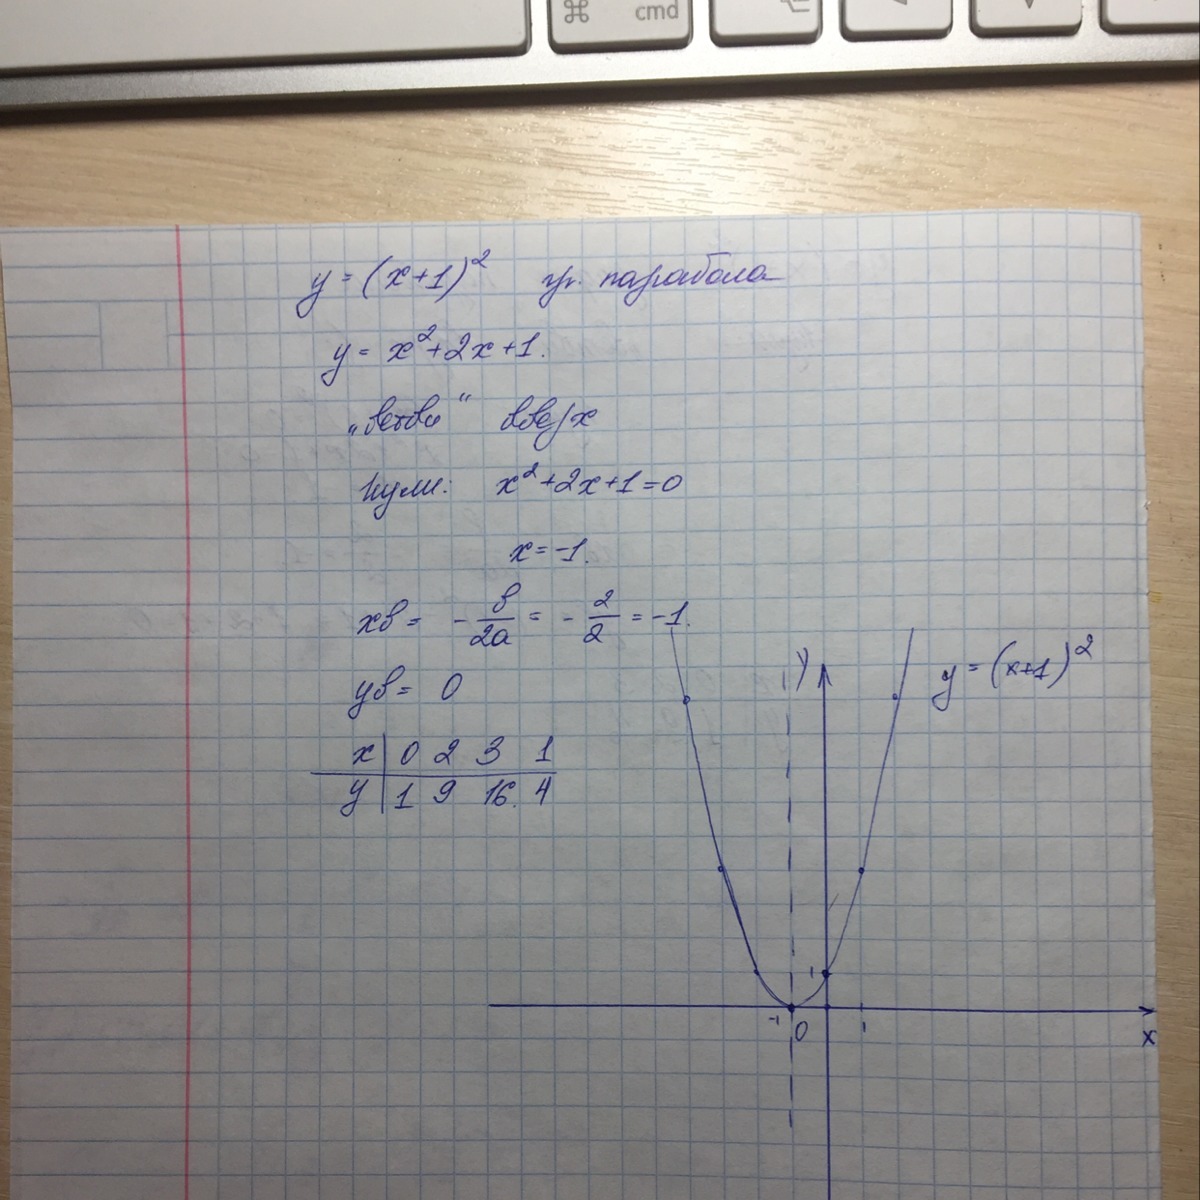 ⌘ cmd
y = (x+1)² гр. парабола
y = x²+2x+1.
„ветви“ вверх
Нули: x²+2x+1=0
x = -1.
xв = - в/2a = - 2/2 = -1.
yв = 0
x | 0 2 3 1
y | 1 9 16 4
y
y = (x+1)²
1
-1 0 1
x